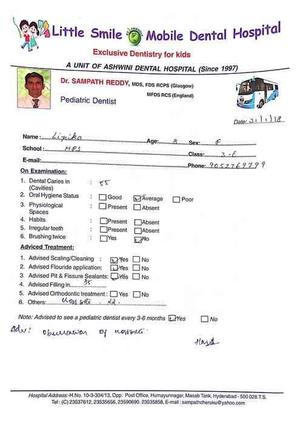 Little Smile Mobile Dental Hospital
Exclusive Dentistry for kids
A UNIT OF ASHWINI DENTAL HOSPITAL (Since 1997)
Dr. SAMPATH REDDY, MDS, FDS RCPS (Glasgow)
MFDS RCS (England)
Pediatric Dentist
Date: 31/1/18
Name: Age: 8 Sex: F
School: HPS Class: 3-F
E-mail: Phone: 9052769799
On Examination:
1. Dental Caries in : 55
(Cavities)
2. Oral Hygiene Status : Good Average Poor
3. Physiological : Present Absent
Spaces
4. Habits : Present Absent
5. Irregular teeth : Present Absent
6. Brushing twice : Yes No
Adviced Treatment:
1. Advised Scaling/Cleaning : Yes No
2. Advised Flouride application: Yes No
3. Advised Pit & Fissure Sealants: Yes No
4. Advised Filling in 35
5. Advised Orthodontic treatment : Yes No
6. Others:
Note: Advised to see a pediatric dentist every 3-6 months Yes No
Adv: observation of
Hospital Address-H.No. 10-3-304/13, Opp. Post Office, Humayunnagar, Masab Tank, Hyderabad - 500 028.T.S.
Tel: (C) 23537612, 23535656, 23590690. 23535858, E-mail : sampathcheruku@yahoo.com